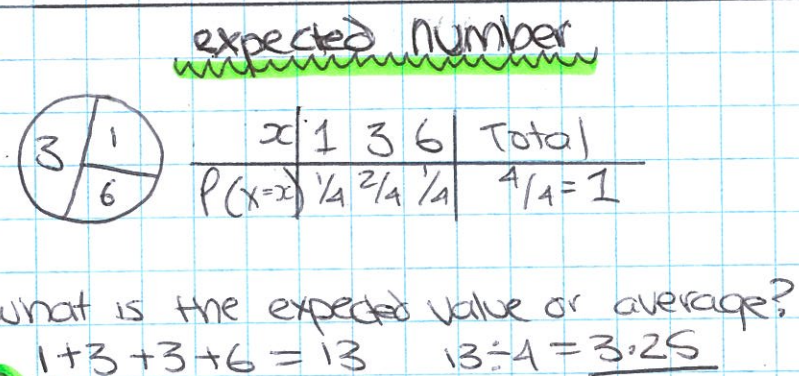 expected number
3 1 6
x 1 3 6 Total
P(X=x) 1/4 2/4 1/4 4/4 = 1
what is the expected value or average?
1+3+3+6 = 13 13÷4 = 3.25